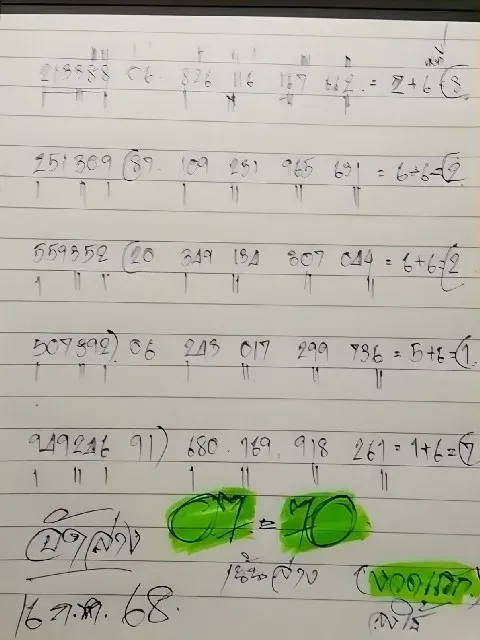 218388 06. 826 116 167 662. = 2+6=8
251309 (87. 109 231 965 631 = 6+6=2
559352 (20 349 134 807 044 = 6+6=2
507392) 06 243 017 299 736 = 5+6=1
949246 91) 680. 769. 918 261 = 1+6=7
07 = 70
ล่าง
เน้นล่าง
(งวดแรก)
16 ก.ค. 68.